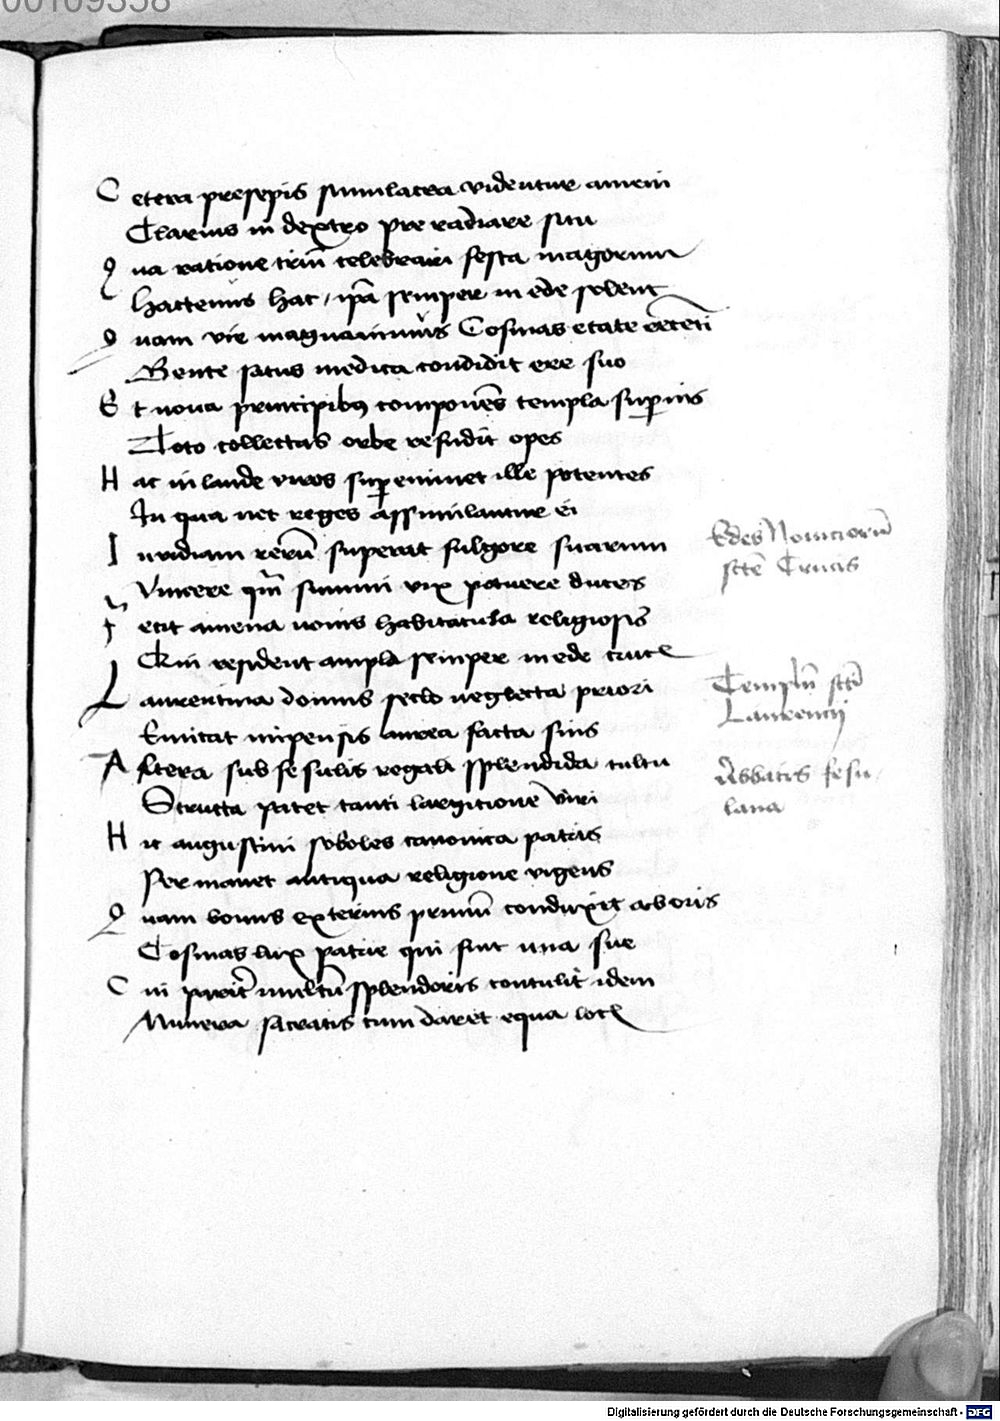 00109358
Cetera presepis simulacra videntur ameni
Clarius in dextro pre radiare situ
Qua ratione triũ celebrari festa magorum
Hactenus hac / ip̃a semper in ede solent
Quam vir magnanimus Cosmas etate recenti
Gente satus medica condidit ere suo
Et noua principibꝰ componẽs templa suꝑnis
Toto collectas orbe refudit opes
Hac in laude viros suꝑeminet ille potentes
In qua nec reges assimilantur ei
Inuidiam rerũ superat fulgore suarum
Vincere qm̃ summi vix potuere duces
Fecit amena nouis habitacula religiosis
Qui resident ampla semper in ede crucis
Laurentina domus seclo neglecta priori
Emicat impensis aurea facta suis
Altera sub fesulis regali splendida cultu
Structa patet tanti largitione viri
Hic augustini soboles canonica patris
Permanet antiqua religione vigens
Quam bonus exterius primũ conduxit ab oris
Cosmas lux patrie qui fuit una sue
Cui pariter multũ splendoris contulit idem
Munera sacratis cum daret equa locis
Edes Nouiciorũ
scte Crucis
Templũ scti
Laurencij
Abbatis fesu
lana
Digitalisierung gefördert durch die Deutsche Forschungsgemeinschaft - DFG